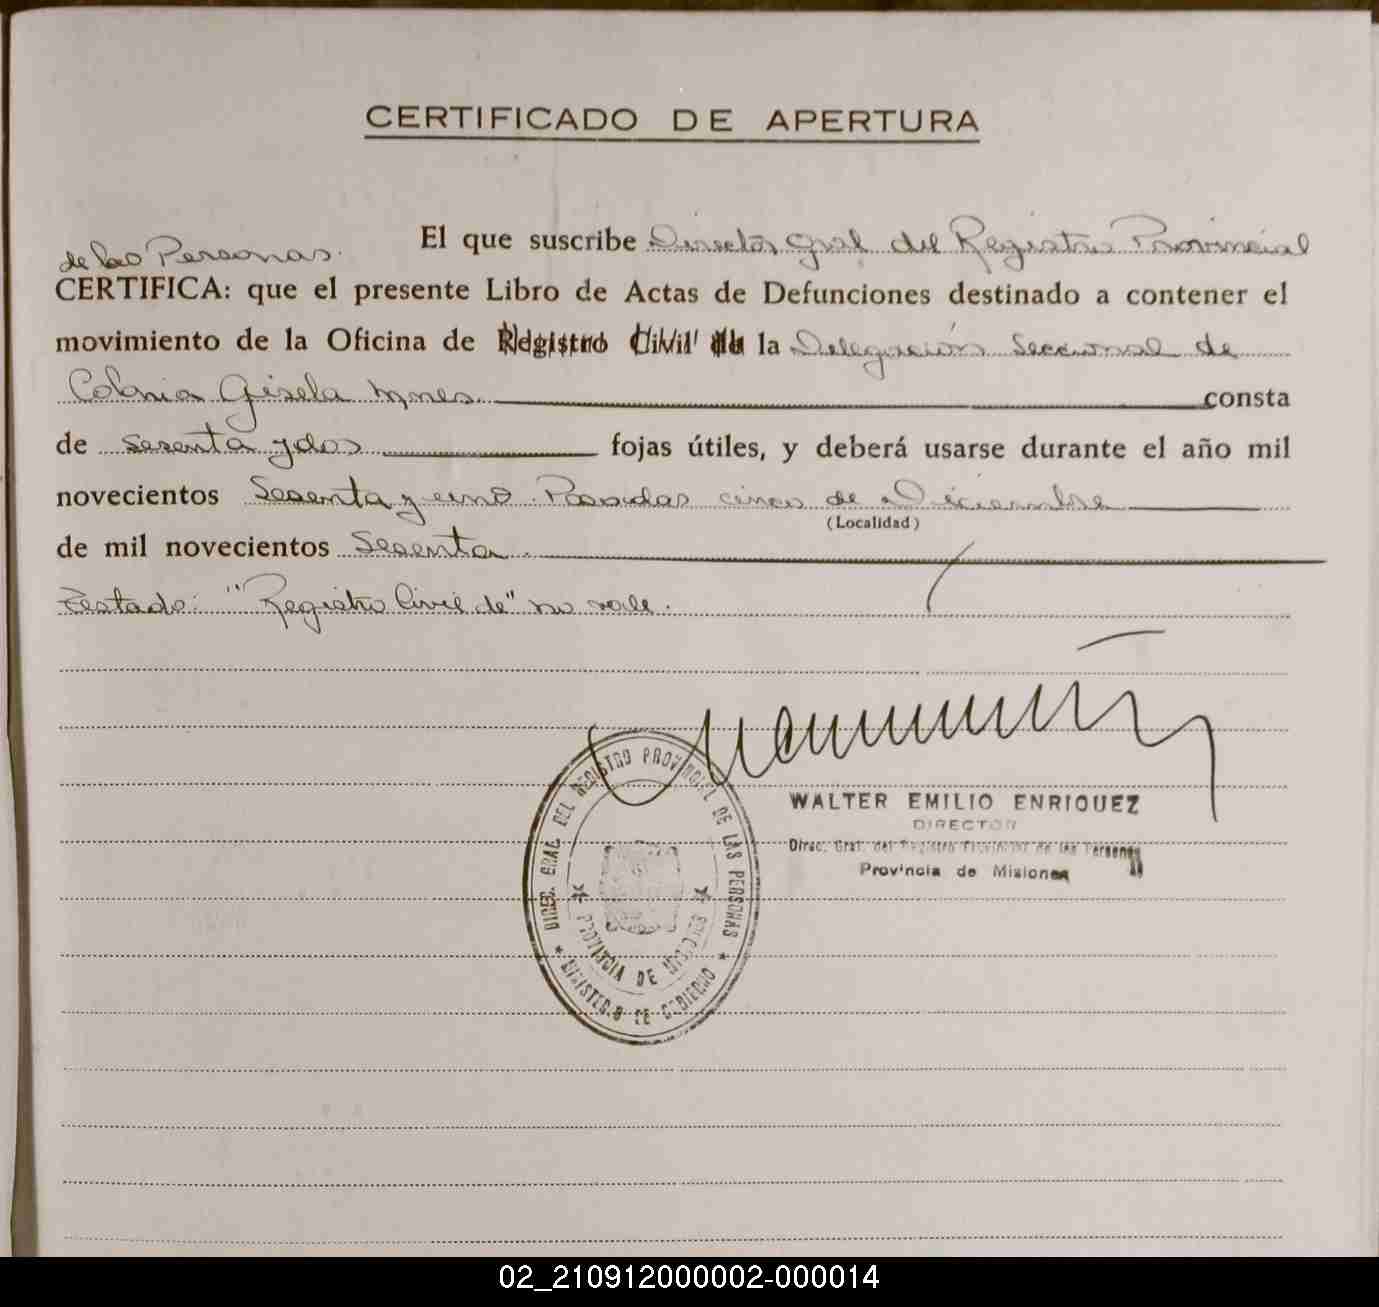 CERTIFICADO DE APERTURA
El que suscribe Director Gral del Registro Provincial
de las Personas.
CERTIFICA: que el presente Libro de Actas de Defunciones destinado a contener el
movimiento de la Oficina de Registro Civil de la Delegación Seccional de
Colonia Gisela consta
de sesenta y dos fojas útiles, y deberá usarse durante el año mil
novecientos Sesenta y uno. Posadas cinco de Diciembre
(Localidad)
de mil novecientos Sesenta.
Testado: "Registro Civil de" no vale.
WALTER EMILIO ENRIQUEZ
DIRECTOR
Direc. Gral. del Registro Provincial de las Personas
Provincia de Misiones
DIREC. GRAL. DEL REGISTRO PROVINCIAL DE LAS PERSONAS
PROVINCIA DE MISIONES
MINISTERIO DE GOBIERNO
02_210912000002-000014